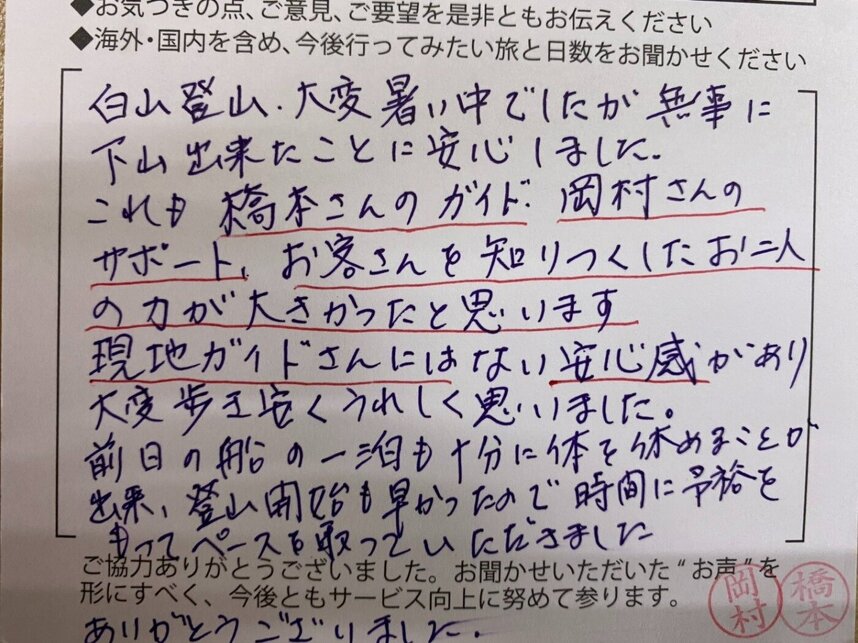 ◆お気づきの点、ご意見、ご要望を是非ともお伝えください
◆海外・国内を含め、今後行ってみたい旅と日数をお聞かせください
白山登山、大変暑い中でしたが無事に
下山出来たことに安心しました。
これも橋本さんのガイド、岡村さんの
サポート、お客さんを知りつくしたお二人
の力が大きかったと思います
現地ガイドさんにはない安心感があり
大変歩き安くうれしく思いました。
前日の船の一泊も十分に体を休めることが
出来、登山開始も早かったので時間に予裕を
もってペースを取っていただきました
ご協力ありがとうございました。お聞かせいただいた“お声”を
形にすべく、今後ともサービス向上に努めて参ります。
ありがとうございました。
岡村
橋本